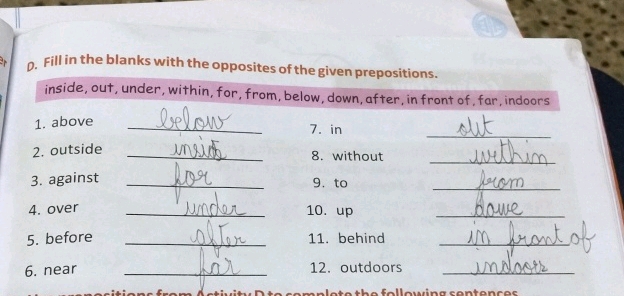 D. Fill in the blanks with the opposites of the given prepositions.
inside, out, under, within, for, from, below, down, after, in front of, far, indoors
1. above below
2. outside inside
3. against for
4. over under
5. before after
6. near far
7. in out
8. without within
9. to from
10. up dowe
11. behind in front of
12. outdoors indoors
prepositions from Activity D to complete the following sentences